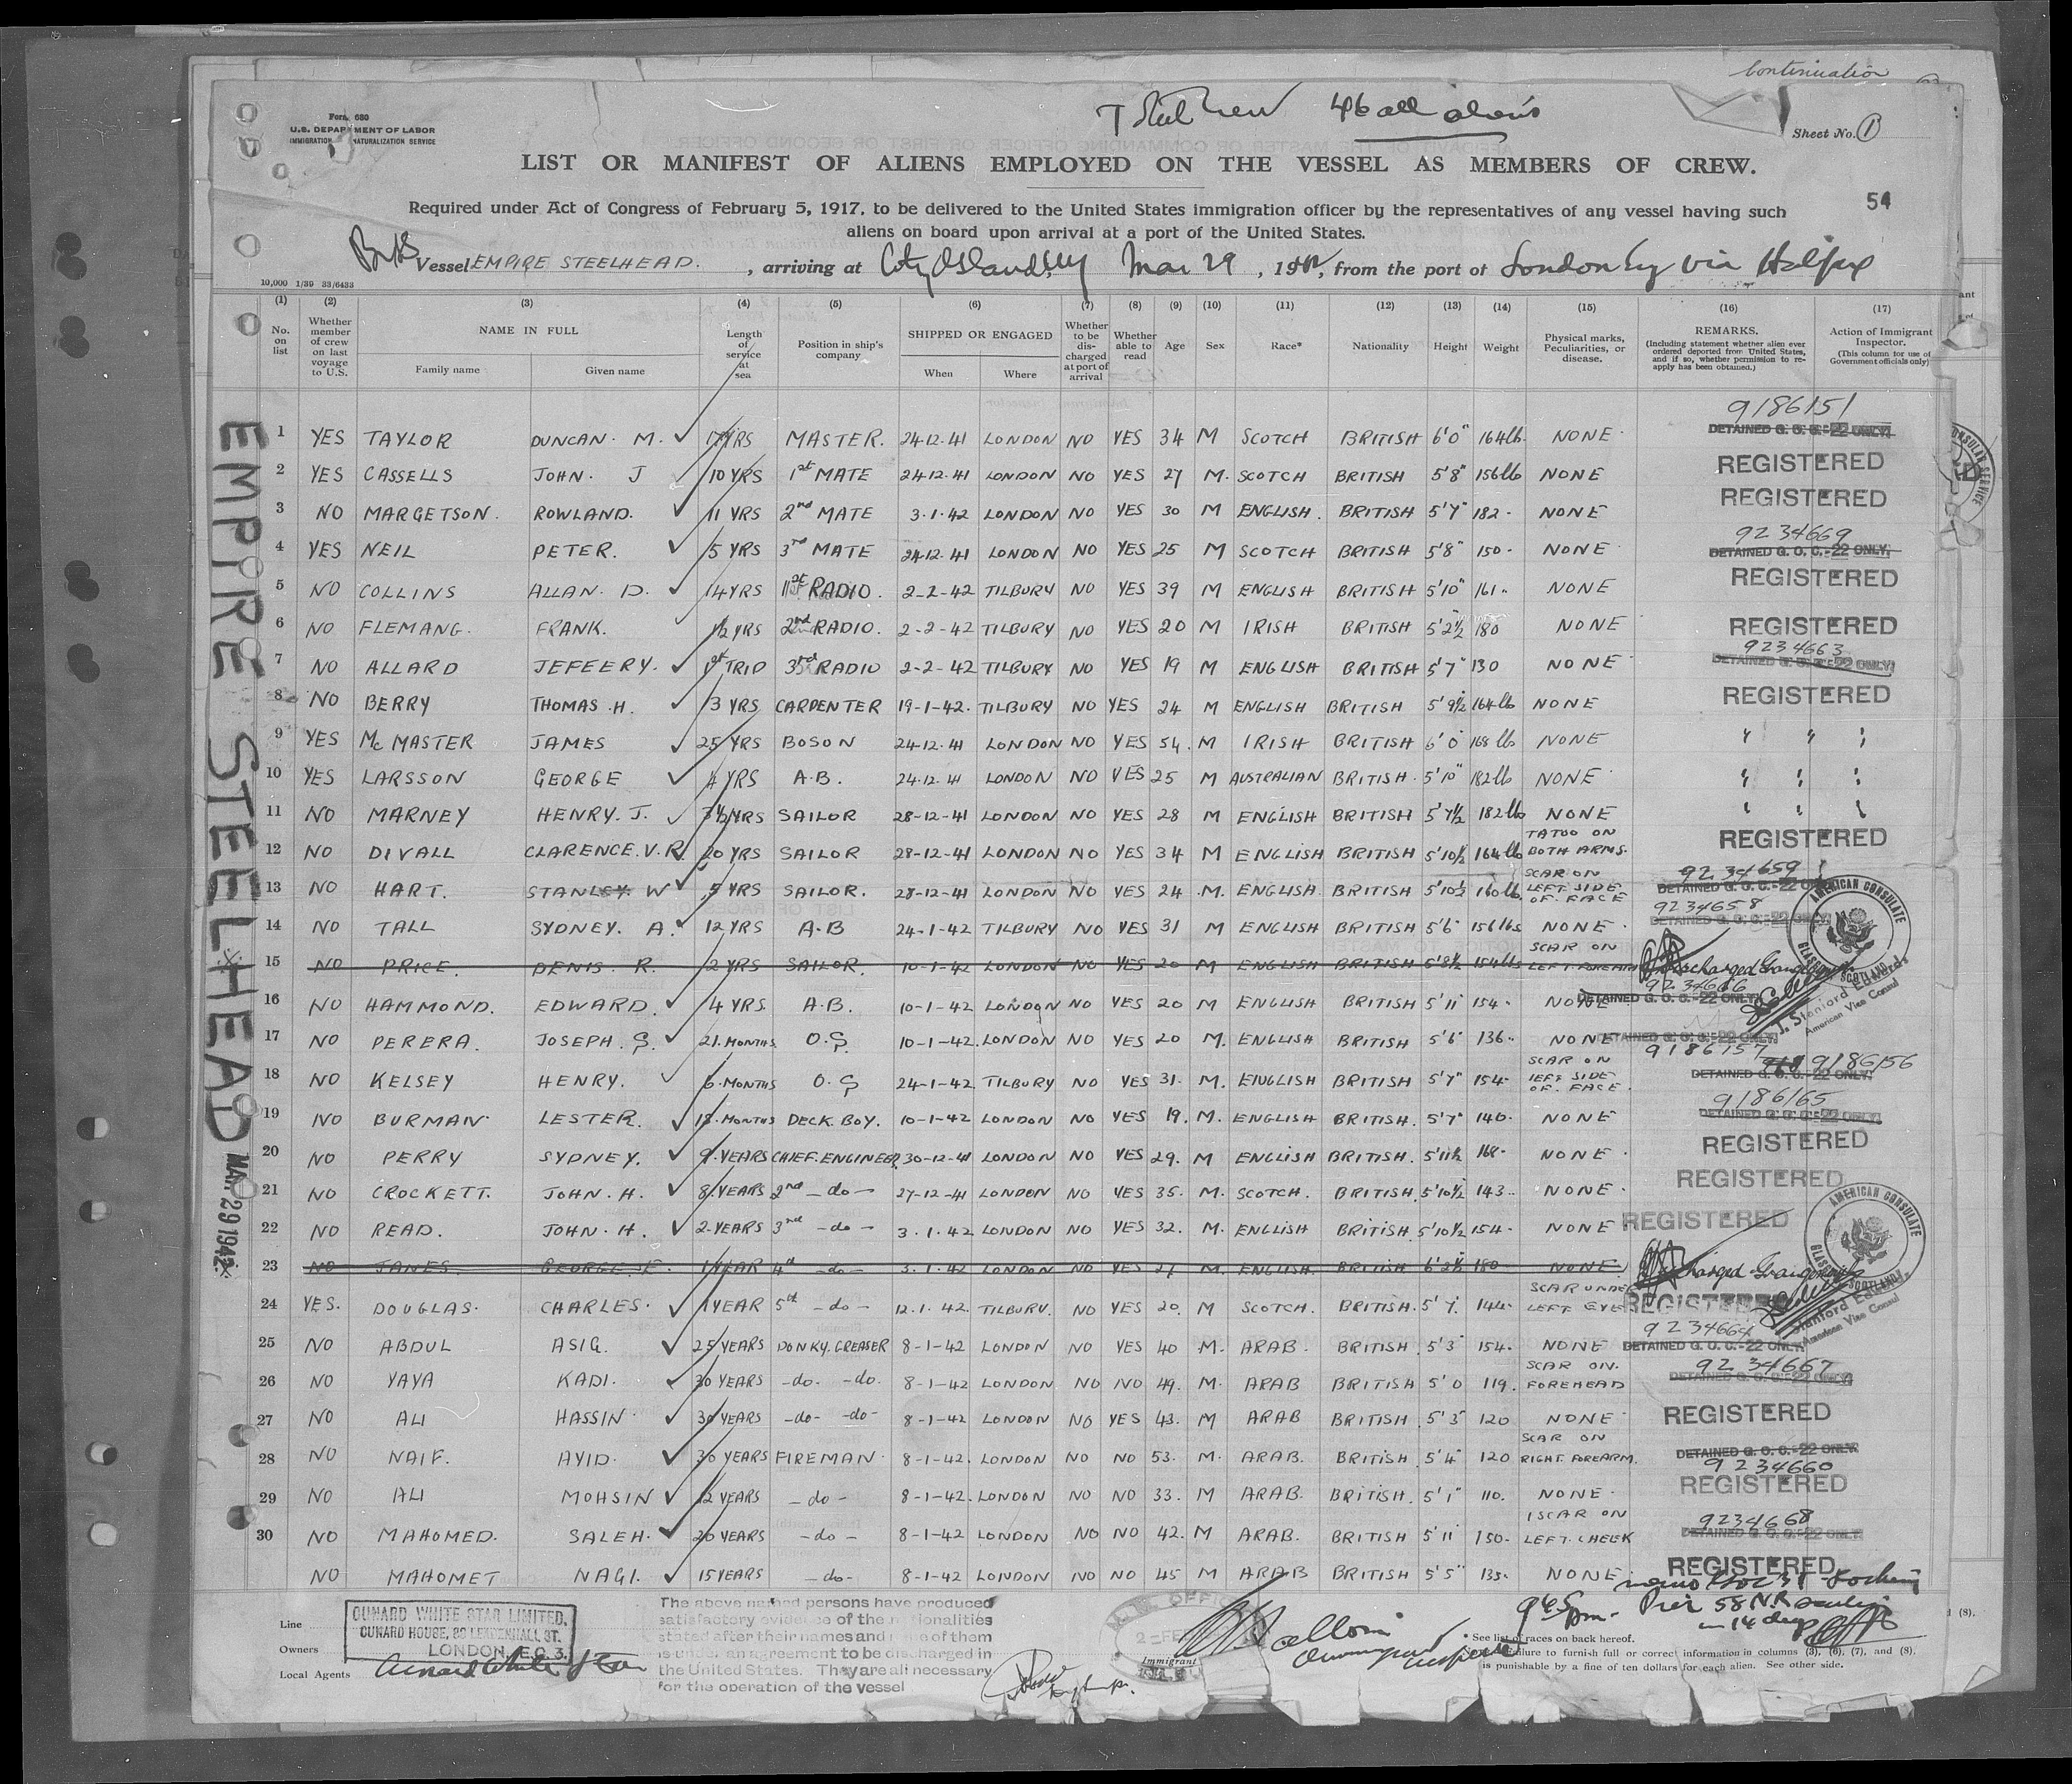 Continuation
46 all aliens
Form 680
U.S. DEPARTMENT OF LABOR
IMMIGRATION NATURALIZATION SERVICE
Sheet No. 1
LIST OR MANIFEST OF ALIENS EMPLOYED ON THE VESSEL AS MEMBERS OF CREW.
54
Required under Act of Congress of February 5, 1917, to be delivered to the United States immigration officer by the representatives of any vessel having such
aliens on board upon arrival at a port of the United States.
Vessel EMPIRE STEELHEAD. , arriving at City Island, NY Mar 29 , 1942, from the port of London Eng via Halifax
10,000 1/39 33/6433
(1) (2) (3) (4) (5) (6) (7) (8) (9) (10) (11) (12) (13) (14) (15) (16) (17)
No. on list
Whether member of crew on last voyage to U.S.
NAME IN FULL
Family name Given name
Length of service at sea
Position in ship's company
SHIPPED OR ENGAGED
When Where
Whether to be discharged at port of arrival
Whether able to read
Age Sex Race* Nationality Height Weight
Physical marks, Peculiarities, or disease.
REMARKS.
(Including statement whether alien ever ordered deported from United States, and if so, whether permission to re-apply has been obtained.)
Action of Immigrant Inspector.
(This column for use of Government officials only)
EMPIRE STEELHEAD MAR 29 1942
9186151
1 YES TAYLOR DUNCAN. M. 17 YRS MASTER. 24-12-41 LONDON NO YES 34 M SCOTCH BRITISH 6'0" 164lb. NONE DETAINED G. O. C.-22 ONLY.
2 YES CASSELLS JOHN. J 10 YRS 1st MATE 24-12-41 LONDON NO YES 27 M. SCOTCH BRITISH 5'8" 156lb NONE REGISTERED
3 NO MARGETSON. ROWLAND. 11 YRS 2nd MATE 3.1.42 LONDON NO YES 30 M ENGLISH. BRITISH 5'7" 182 - NONE REGISTERED
9234669
4 YES NEIL PETER. 5 YRS 3rd MATE 24-12-41 LONDON NO YES 25 M SCOTCH BRITISH 5'8" 150 - NONE DETAINED G. O. C.-22 ONLY.
5 NO COLLINS ALLAN. D. 14 YRS 1st RADIO. 2-2-42 TILBURY NO YES 39 M ENGLISH BRITISH 5'10" 161 - NONE REGISTERED
6 NO FLEMANG. FRANK. 1/2 YRS 2nd RADIO. 2-2-42 TILBURY NO YES 20 M IRISH BRITISH 5'2½ 180 NONE REGISTERED
9234663
7 NO ALLARD JEFFERY. 1st TRIP 3rd RADIO 2-2-42 TILBURY NO YES 19 M ENGLISH BRITISH 5'7" 130 NONE DETAINED G. O. C.-22 ONLY.
8 NO BERRY THOMAS. H. 3 YRS CARPENTER 19-1-42. TILBURY NO YES 24 M ENGLISH BRITISH 5'9½ 164lb NONE REGISTERED
9 YES Mc MASTER JAMES 25 YRS BOSON 24-12-41 LONDON NO YES 54. M IRISH BRITISH 6'0" 168lb NONE " " "
10 YES LARSSON GEORGE 4 YRS A.B. 24-12-41 LONDON NO YES 25 M AUSTRALIAN BRITISH. 5'10" 182lb NONE " " "
11 NO MARNEY HENRY. J. 3½ YRS SAILOR 28-12-41 LONDON NO YES 28 M ENGLISH BRITISH 5'7½ 182lb NONE " " "
12 NO DIVALL CLARENCE. V. R. 20 YRS SAILOR 28-12-41 LONDON NO YES 34 M ENGLISH BRITISH 5'10½ 164lb TATOO ON BOTH ARMS. REGISTERED
9234659
13 NO HART. STANLEY. W 5 YRS SAILOR. 28-12-41 LONDON NO YES 24 .M. ENGLISH. BRITISH 5'10½ 160lb. SCAR ON LEFT SIDE OF. FACE DETAINED G. O. C.-22 ONLY.
9234658
14 NO TALL SYDNEY. A. 12 YRS A.B 24-1-42 TILBURY NO YES 31 M ENGLISH BRITISH 5'6" 156lbs NONE DETAINED G. O. C.-22 ONLY.
15 NO PRICE. DENIS. R. 2 YRS SAILOR. 10-1-42 LONDON NO YES 20 M ENGLISH BRITISH 5'8½ 154lbs SCAR ON LEFT FOREARM Discharged Grangemouth
9234666
16 NO HAMMOND. EDWARD. 4 YRS. A.B. 10-1-42 LONDON NO YES 20 M ENGLISH BRITISH 5'11" 154 - NONE DETAINED G. O. C.-22 ONLY.
17 NO PERERA. JOSEPH. S. 21. MONTHS O.S. 10-1-42. LONDON NO YES 20 M. ENGLISH BRITISH 5'6" 136 - NONE DETAINED G. O. C.-22 ONLY.
9186157 9186156
18 NO KELSEY HENRY. 6. MONTHS O. S 24-1-42 TILBURY NO YES 31. M. ENGLISH BRITISH 5'7" 154 - SCAR ON LEFT SIDE OF. FACE. DETAINED G. O. C.-22 ONLY.
9186165
19 NO BURMAN LESTER. 18. MONTHS DECK. BOY. 10-1-42 LONDON NO YES 19. M. ENGLISH BRITISH. 5'7" 140 - NONE DETAINED G. O. C.-22 ONLY.
20 NO PERRY SYDNEY. 9. YEARS CHIEF. ENGINEER 30-12-41 LONDON NO YES 29. M ENGLISH BRITISH. 5'11½ 168 - NONE. REGISTERED
21 NO CROCKETT. JOHN. H. 8. YEARS 2nd - do - 27-12-41 LONDON NO YES 35. M. SCOTCH. BRITISH. 5'10½ 143 - NONE. REGISTERED
22 NO READ. JOHN. H. 2. YEARS 3rd - do - 3.1.42 LONDON NO YES 32. M. ENGLISH BRITISH. 5'10½ 154 - NONE REGISTERED
23 NO JANES. GEORGE. E. 1 YEAR 4th - do - 3.1.42 LONDON NO YES 27 M. ENGLISH. BRITISH 6'2½ 180 NONE Discharged Grangemouth
24 YES. DOUGLAS. CHARLES. 1 YEAR 5th - do - 12.1.42. TILBURY. NO YES 20. M SCOTCH. BRITISH. 5'7" 144 - SCAR UNDER LEFT EYE REGISTERED
AMERICAN CONSULATE
GLASGOW, SCOTLAND
J. Stanford Edwards
American Vice Consul
9234664
25 NO ABDUL ASIG. 25 YEARS DONKY. GREASER 8-1-42 LONDON NO YES 40 M. ARAB. BRITISH. 5'3" 154 - NONE DETAINED G. O. C.-22 ONLY.
9234667
26 NO YAYA KADI. 30 YEARS -do. -do. 8-1-42 LONDON NO NO 49. M. ARAB BRITISH 5'0 119. SCAR ON. FOREHEAD DETAINED G. O. C.-22 ONLY.
27 NO ALI HASSIN 30 YEARS -do- -do- 8-1-42 LONDON NO YES 43. M ARAB BRITISH. 5'3" 120 NONE REGISTERED
28 NO NAIF. AYID. 30 YEARS FIREMAN. 8-1-42. LONDON NO NO 53. M. ARAB. BRITISH. 5'4" 120 SCAR ON RIGHT. FOREARM. DETAINED G. O. C.-22 ONLY.
9234660
29 NO ALI MOHSIN 12 YEARS - do - 8-1-42. LONDON NO NO 33. M ARAB. BRITISH. 5'1" 110. NONE. REGISTERED
9234668
30 NO MAHOMED. SALEH. 20 YEARS - do - 8-1-42 LONDON NO NO 42. M ARAB. BRITISH 5'11 150 - 1 SCAR ON LEFT. CHEEK DETAINED G. O. C.-22 ONLY.
NO MAHOMET NAGI. 15 YEARS - do - 8-1-42 LONDON NO NO 45 M ARAB BRITISH 5'5" 135. NONE. REGISTERED
Line
Owners
Local Agents
CUNARD WHITE STAR LIMITED,
CUNARD HOUSE, 88 LEADENHALL ST.
LONDON, E.C.3.
Cunard White Star
The above named persons have produced
satisfactory evidence of the nationalities
stated after their names and none of them
is under an agreement to be discharged in
the United States. They are all necessary
for the operation of the vessel
Immigrant
945 pm. Pier 58 N.R.
in 14 days
See list of races on back hereof.
Failure to furnish full or correct information in columns (3), (6), (7), and (8).
is punishable by a fine of ten dollars for each alien. See other side.